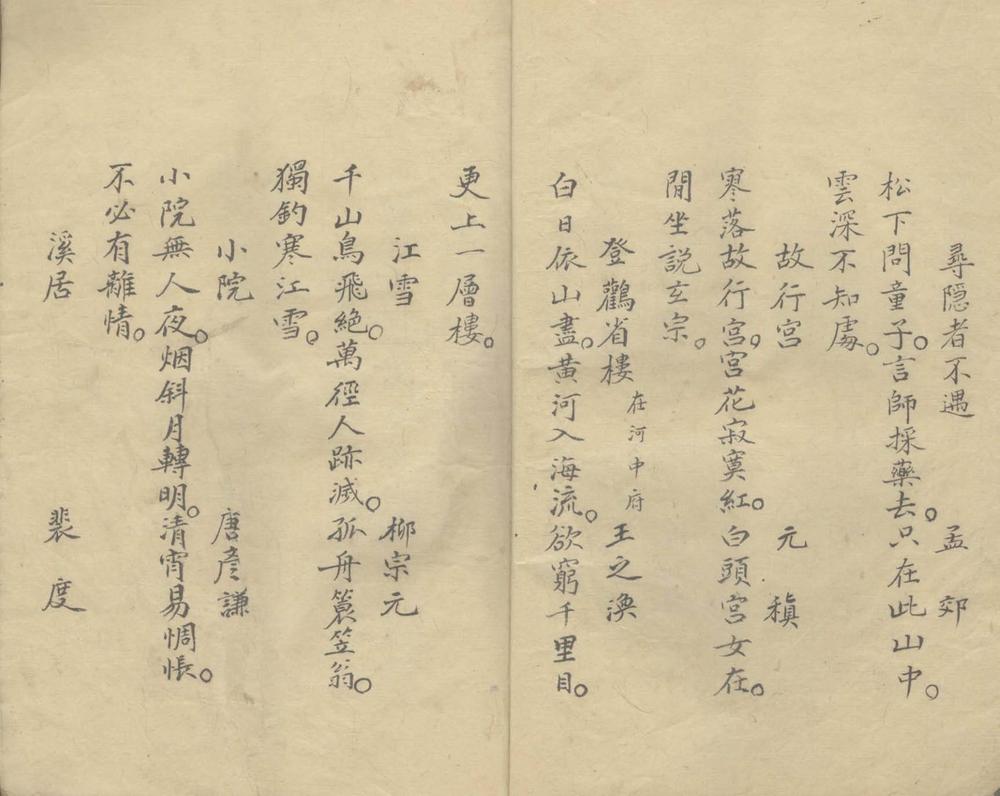 尋隱者不遇　孟郊
松下問童子。言師採藥去。只在此山中。
雲深不知處。
故行宮　元稹
寒落故行宮。宮花寂寞紅。白頭宮女在。
閒坐説玄宗。
登鸛省樓 在河中府 王之渙
白日依山盡。黄河入海流。欲窮千里目。
更上一層樓。
江雪　柳宗元
千山鳥飛絶。萬徑人跡滅。孤舟簑笠翁。
獨釣寒江雪。
小院　唐彦謙
小院無人夜。烟斜月轉明。清宵易惆悵。
不必有離情。
溪居　裴度